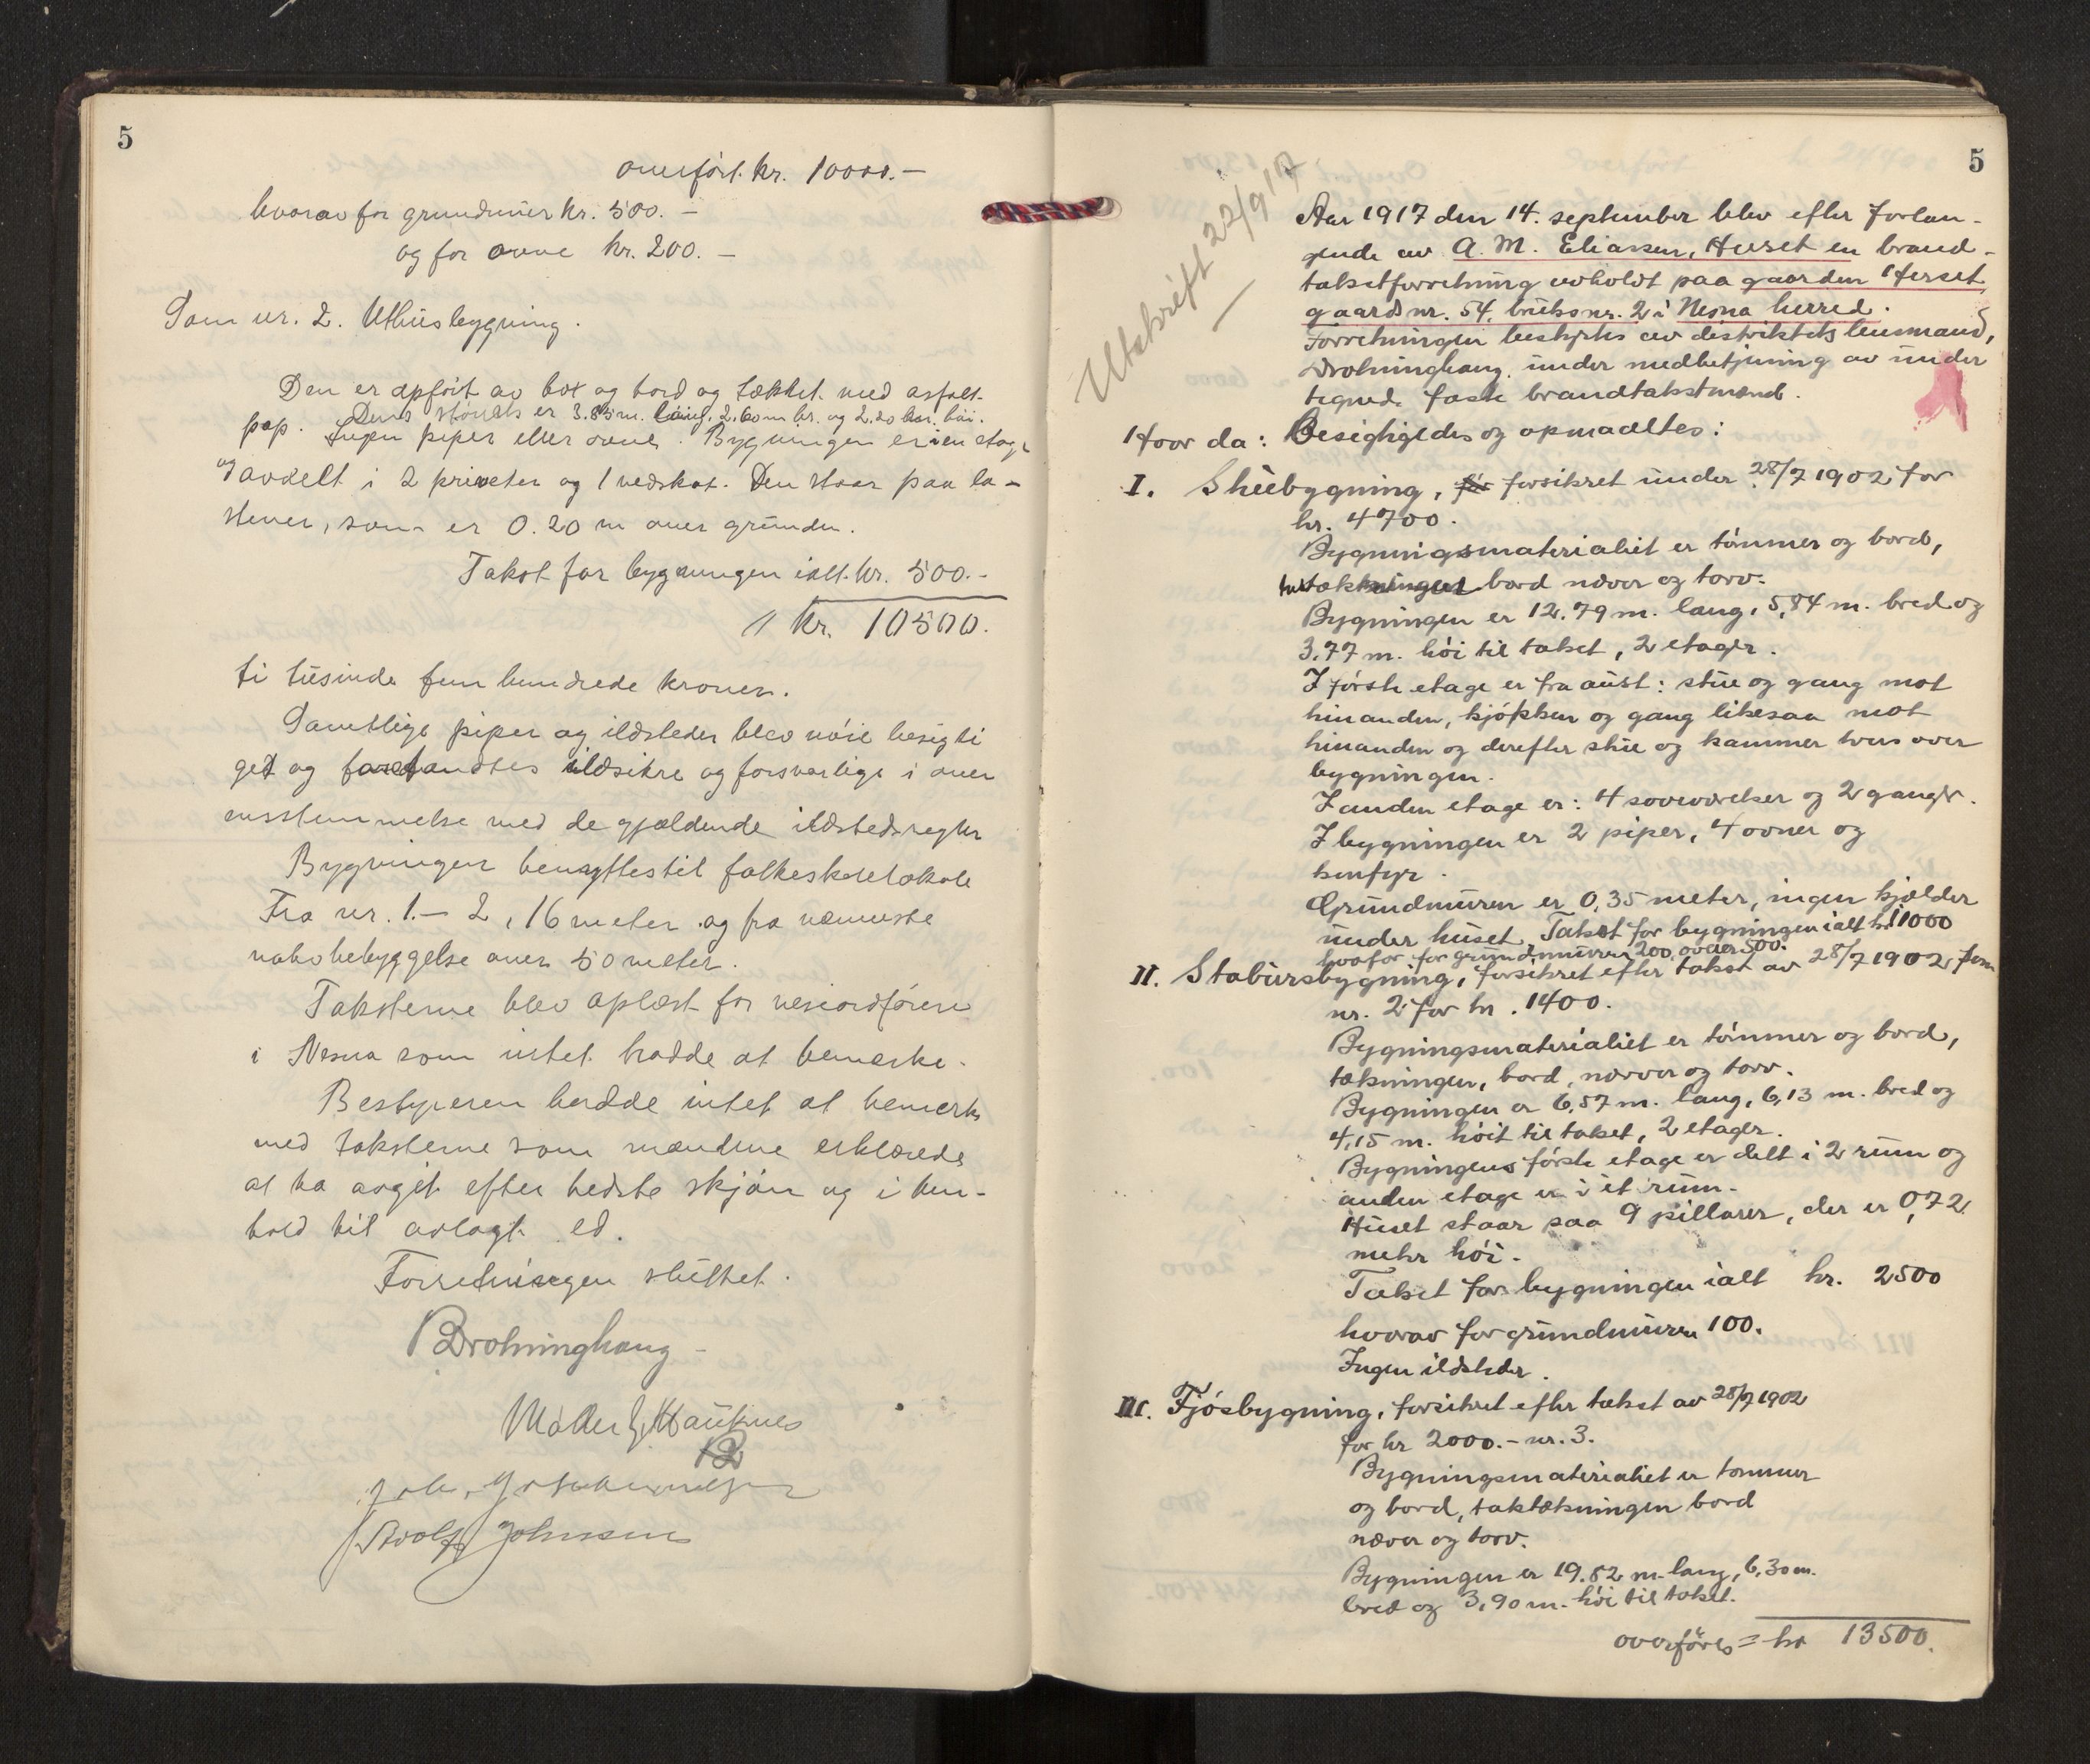 5
overført kr. 10000.—
hvorav for grundmur kr. 500.—
og for ovne kr. 200.—
Som nr. 2. Uthusbygning.
Den er opført av box og bord og tækket med asfalt-
Dens størrels er 3.85 m. lang, 2.60 m br. og 2.20 m. høi.
pap. Ingen piper eller ovne. Bygningen er i en etage
og avdelt i 2 priveter og 1 vedskot. Den staar paa la-
stener, som er 0.20 m over grunden.
Takst for bygningen ialt kr. 500.-
kr. 10500.
ti tusinde fem hundrede kroner.
Samtlige piper og ildsteder blev nøie besigti
get og forefandtes ildsikre og forsvarlige i over
ensstemmelse med de gjældende ildstedsregler
Bygningen benyttes til folkeskolelokale
Fra nr. 1.— 2, 16 meter og fra nærmeste
nabobebyggelse over 50 meter.
Taksterne blev oplæst for viseordføreren
i Nesna som intet hadde at bemerke.
Bestyreren hadde intet at bemerke
med taksterne som mændene erklærede
at ha avgit efter bedste skjøn og i hen-
hold til avlagt ed.
Forretningen sluttet.
Dronninghaug
Adolf Johnsen
5
Utskrift 22/9 17
Aar 1917 den 14. september blev efter forlan-
gende av A. M. Eliassen, Herset en brand-
takstforretning avholdt paa gaarden Herset,
gaardsnr. 54, bruksnr. 2 i Nesna herred.
Forretningen bestyrtes av distriktets lensmand,
Dronninghaug, under medbetjening av under
tegnede faste brandtakstmænd.
Hvor da: Besigtigedes og opmaaltes:
I. Stuebygning, før forsikret under 28/7 1902 for
kr. 4700.
Bygningsmaterialiet er tømmer og bord,
taktækningen bord næver og torv.
Bygningen er 12.79 m. lang, 5,84 m. bred og
3,77 m. høi til taket, 2 etager.
I første etage er fra aust: stue og gang mot
hinanden, kjøkken og gang likesaa mot
hinanden og derefter stue og kammer tvers over
bygningen.
I anden etage er: 4 soveværelser og 2 ganger.
I bygningen er 2 piper, 4 ovner og
komfyr.
Grundmuren er 0,35 meter, ingen kjælder
under huset. Takst for bygningen ialt kr. 11000
hvorfor for grundmuren 200, ovner 500.
II. Stabursbygning, forsikret efter takst av 28/7 1902 som
nr. 2 for kr. 1400.
Bygningsmaterialiet er tømmer og bord,
tækningen, bord, næver og torv.
Bygningen er 6,57 m. lang, 6,13 m. bred og
4,15 m. høit til taket, 2 etager.
Bygningens første etage er delt i 2 rum og
anden etage er i et rum.
Huset staar paa 9 pillarer, der er 0,72
meter høi.
Takst for bygningen ialt kr. 2500
hvorav for grundmuren 100.
Ingen ildsteder.
III. Fjøsbygning, forsikret efter takst av 28/7 1902
for kr 2000.- nr. 3.
Bygningsmaterialiet er tømmer
og bord, taktækningen bord
næver og torv.
Bygningen er 19.82 m. lang, 6,30 m.
bred og 3,90 m. høi til taket.
overføres = kr 13500.